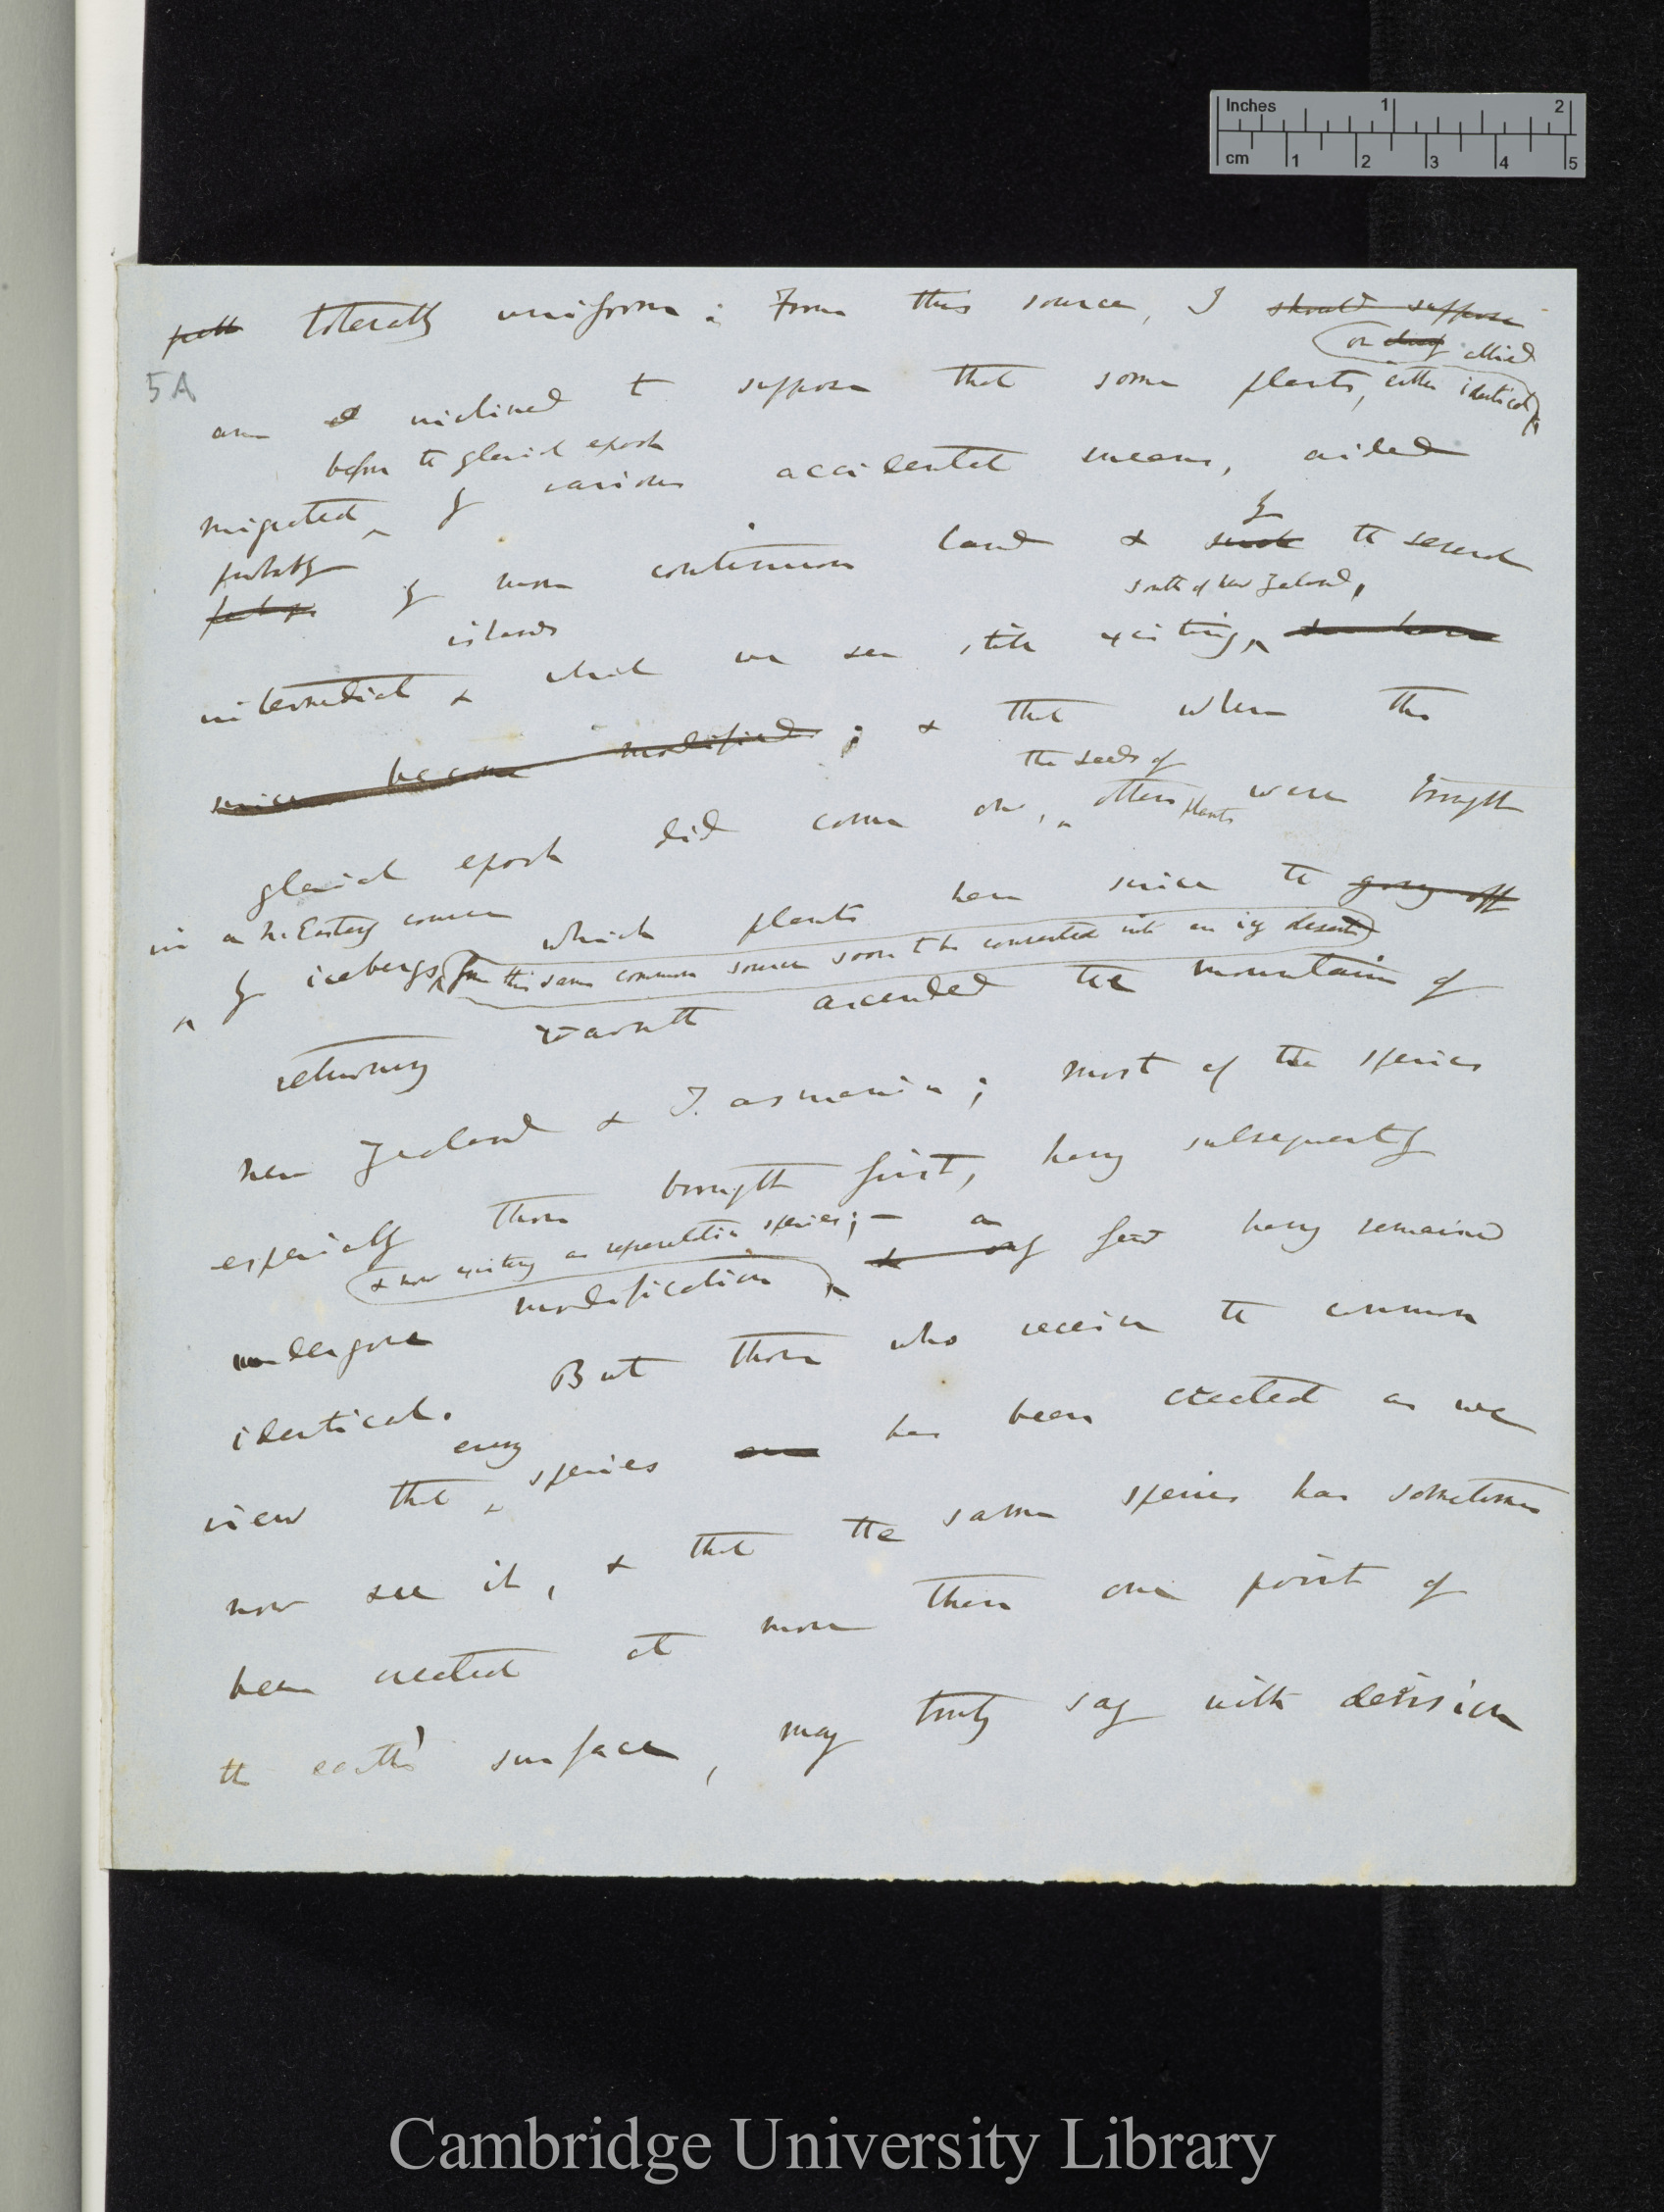 Inches 1 2
cm 1 2 3 4 5
tolerably uniform; From this source, I should suppose
or allied
5A
am inclined to suppose that some plants, either identical
before the glacial epoch
migrated by various accidental means, aided
probably
perhaps by more continuous land & by such the several
south of New Zealand,
islands
intermediate & which we see still existing,
since become modified; & that when the
the seeds of
glacial epoch did come on, others plants were brought
in a N. Easterly course
by icebergs, which plants have since the going off
from this same common source soon to be converted into an icy desert
returning warmth ascended the mountains of
New Zealand & Tasmania; most of the species
especially those brought first, having subsequently
& now existing as representative species; — a
undergone modification, & only few having remained
identical. But those who receive the common
every
view that species has been created as we
now see it, & that the same species has sometimes
been created at more than one point of
the earth's surface, may truly say with derision
Cambridge University Library